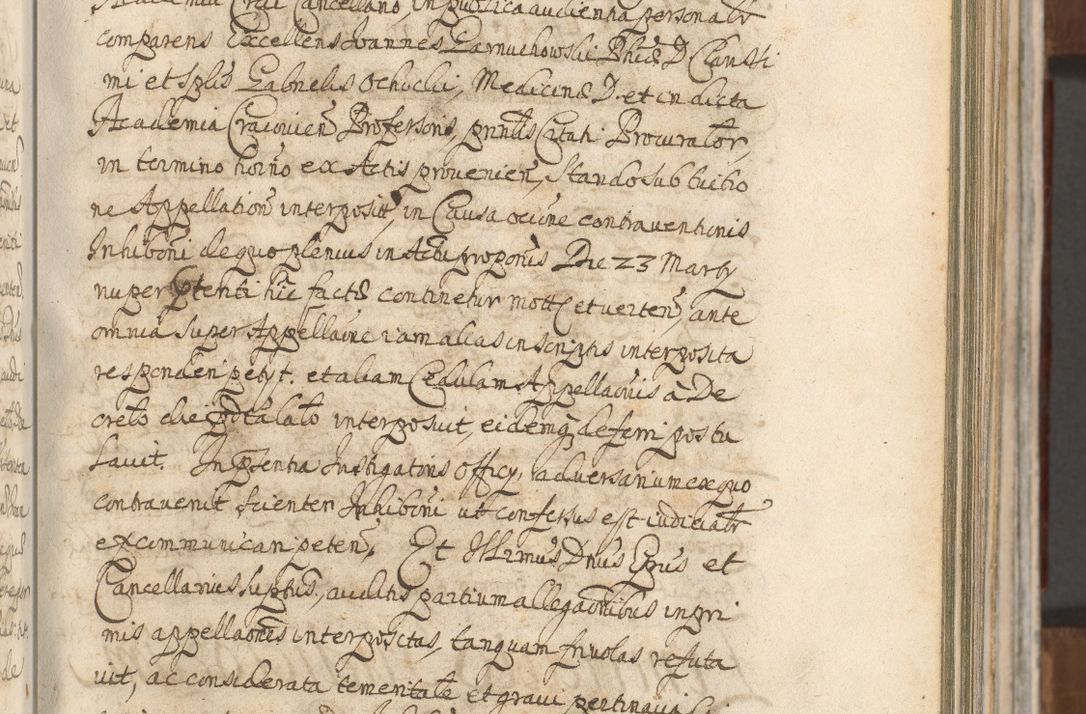 Academia Crac Cancellario, in publica audientia personalr
comparens Excellens Joannes Garnuchowski Phiae D Clarissi
mi et Splis Gabrielis Ochocki, Medicinae D. et in dicta
Academia Cracovien Professoris, prntis Citati Procurator,
in termino horno ex Actis provenien, stando sub tuitio
ne Appellation interposit, in Causa ocione contraventionis
Inhiboni de quo plenius in Actu proponis Die 23 Martij
nuper ptenti hic facta continetur mott et verten, ante
omnia super Appellaone iam alias in scriptis interposita
responderi petijt. et aliam Cedulam Appellaonis a De
creto die p talato interposuit, eidemq deferri postu
lavit. In pntia Instigatoris Officij, adversarium ex quo
contravenit scienter Inhiboni ut confessus est iudicialr
excommunicari peten. Et Illrmus Dnus Epus et
Cancellarius suptus, auditis partium allegaonibus inpri
mis appellaones interpositas, tanquam frivolas refuta
vit, ac considerata temeritate et gravi pertinacia